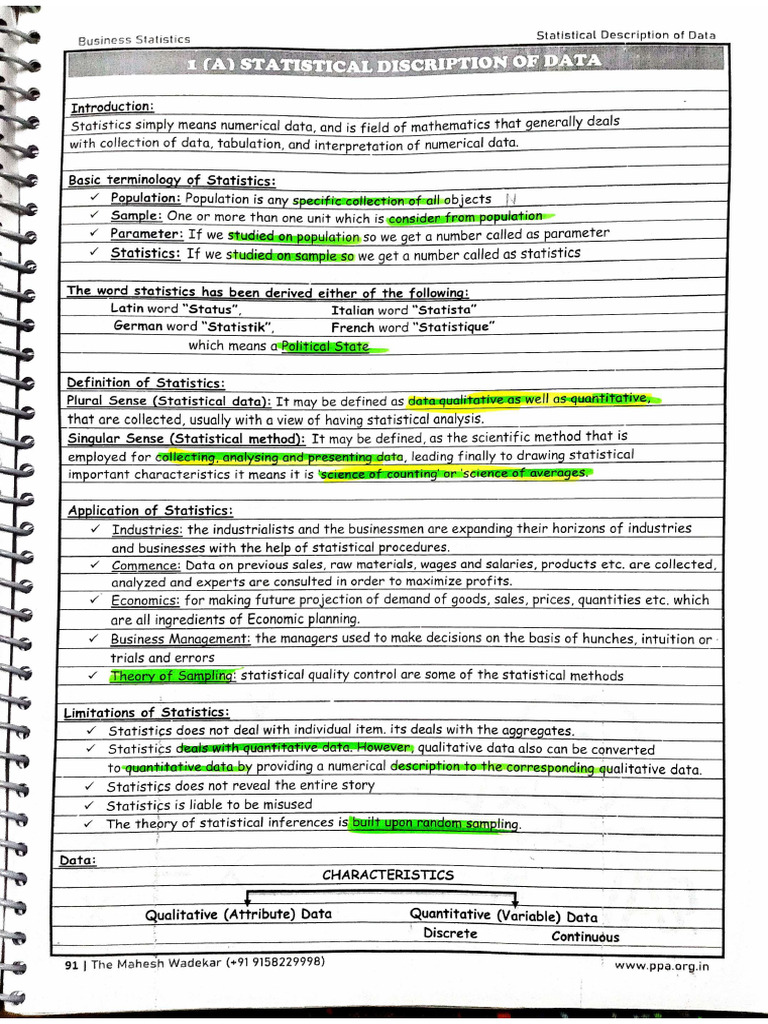 Business Statistics
Statistical Description of Data
1 (A) STATISTICAL DISCRIPTION OF DATA
Introduction:
Statistics simply means numerical data, and is field of mathematics that generally deals
with collection of data, tabulation, and interpretation of numerical data.
Basic terminology of Statistics:
✓ Population: Population is any specific collection of all objects N
✓ Sample: One or more than one unit which is consider from population
✓ Parameter: If we studied on population so we get a number called as parameter
✓ Statistics: If we studied on sample so we get a number called as statistics
The word statistics has been derived either of the following:
Latin word "Status", Italian word "Statista"
German word "Statistik", French word "Statistique"
which means a Political State
Definition of Statistics:
Plural Sense (Statistical data): It may be defined as data qualitative as well as quantitative,
that are collected, usually with a view of having statistical analysis.
Singular Sense (Statistical method): It may be defined, as the scientific method that is
employed for collecting, analysing and presenting data, leading finally to drawing statistical
important characteristics it means it is 'science of counting' or 'science of averages.
Application of Statistics:
✓ Industries: the industrialists and the businessmen are expanding their horizons of industries
and businesses with the help of statistical procedures.
✓ Commence: Data on previous sales, raw materials, wages and salaries, products etc. are collected,
analyzed and experts are consulted in order to maximize profits.
✓ Economics: for making future projection of demand of goods, sales, prices, quantities etc. which
are all ingredients of Economic planning.
✓ Business Management: the managers used to make decisions on the basis of hunches, intuition or
trials and errors
✓ Theory of Sampling: statistical quality control are some of the statistical methods
Limitations of Statistics:
✓ Statistics does not deal with individual item. its deals with the aggregates.
✓ Statistics deals with quantitative data. However, qualitative data also can be converted
to quantitative data by providing a numerical description to the corresponding qualitative data.
✓ Statistics does not reveal the entire story
✓ Statistics is liable to be misused
✓ The theory of statistical inferences is built upon random sampling.
Data:
CHARACTERISTICS
Qualitative (Attribute) Data Quantitative (Variable) Data
Discrete Continuous
91 | The Mahesh Wadekar (+91 9158229998)
www.ppa.org.in